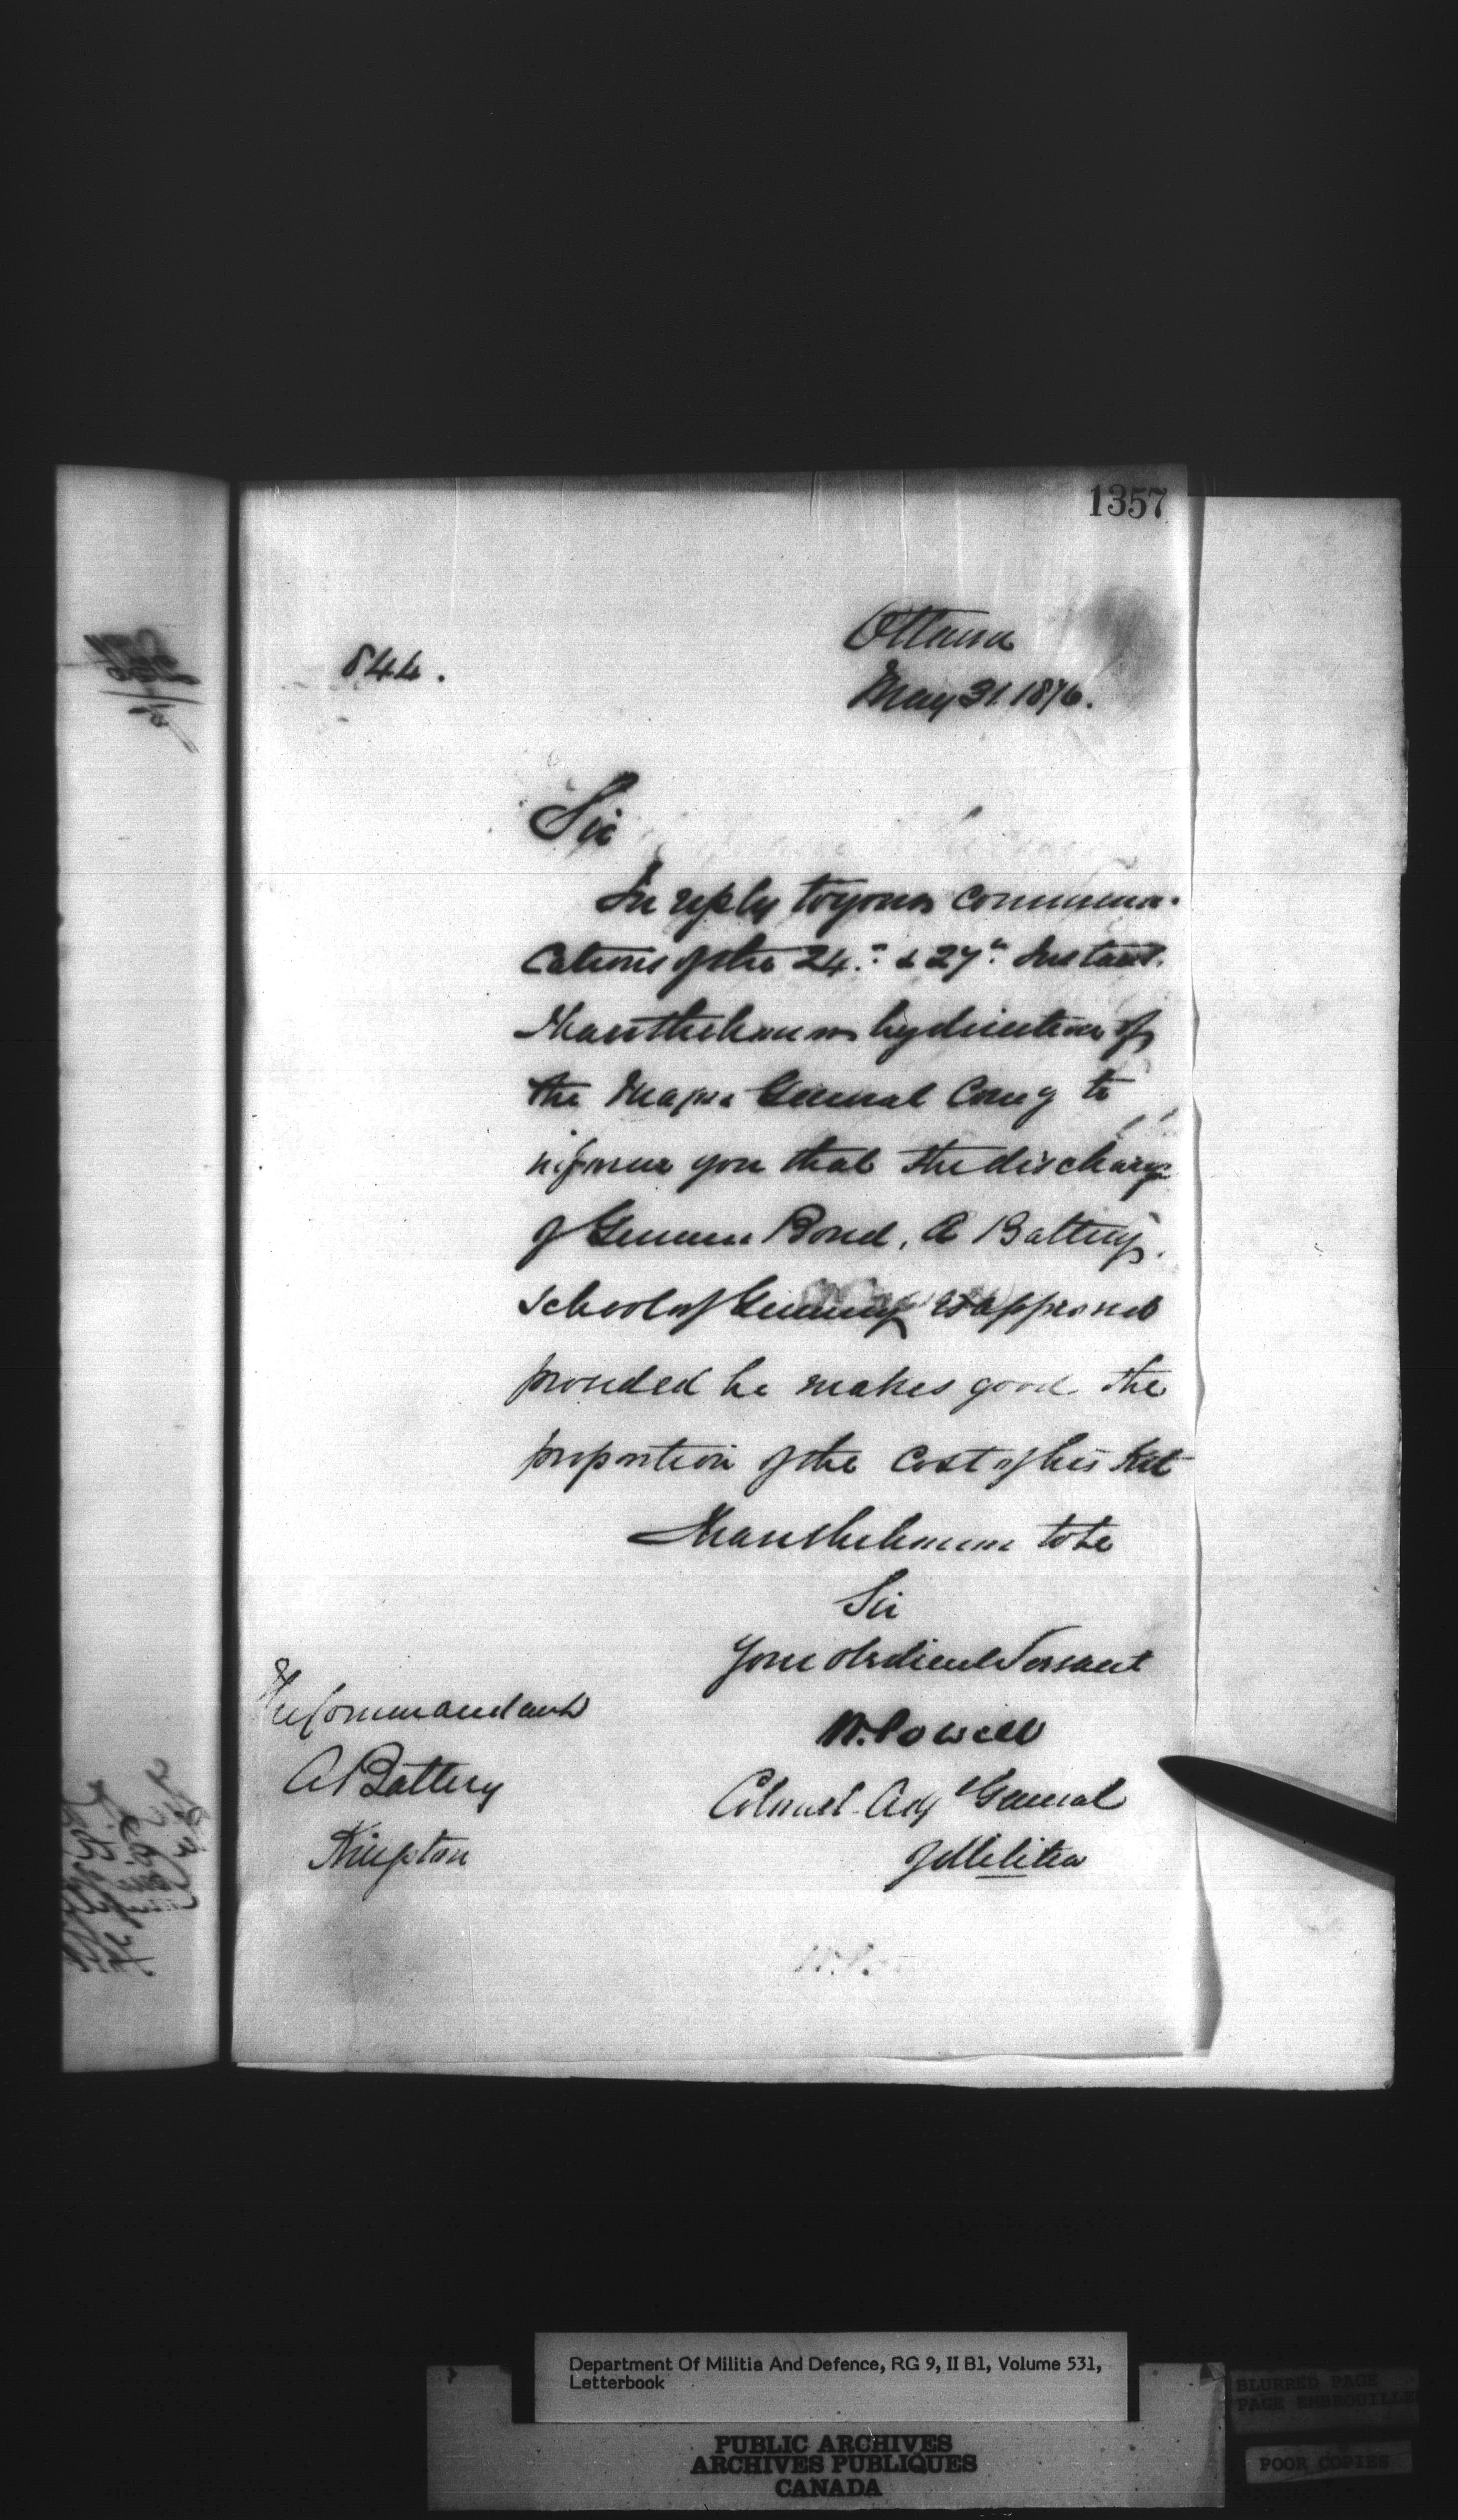 1357
Ottawa
844.
May 31. 1876.
Sir
In reply to your communi-
cations of the 24th & 27th Instant.
I have the honour by direction of
the Major General Comg to
inform you that the discharge
of Gunner Bond, A Battery,
School of Gunnery is approved
provided he makes good the
proportion of the cost of his Kit
I have the honour to be
Sir
Your obedient Servant
W. Powell
Colonel Adjt General
of Militia
The Commandant
A Battery
Kingston
Department Of Militia And Defence, RG 9, II B1, Volume 531,
Letterbook
PUBLIC ARCHIVES
ARCHIVES PUBLIQUES
CANADA
BLURRED PAGE
PAGE EMBROUILLE
POOR COPIES